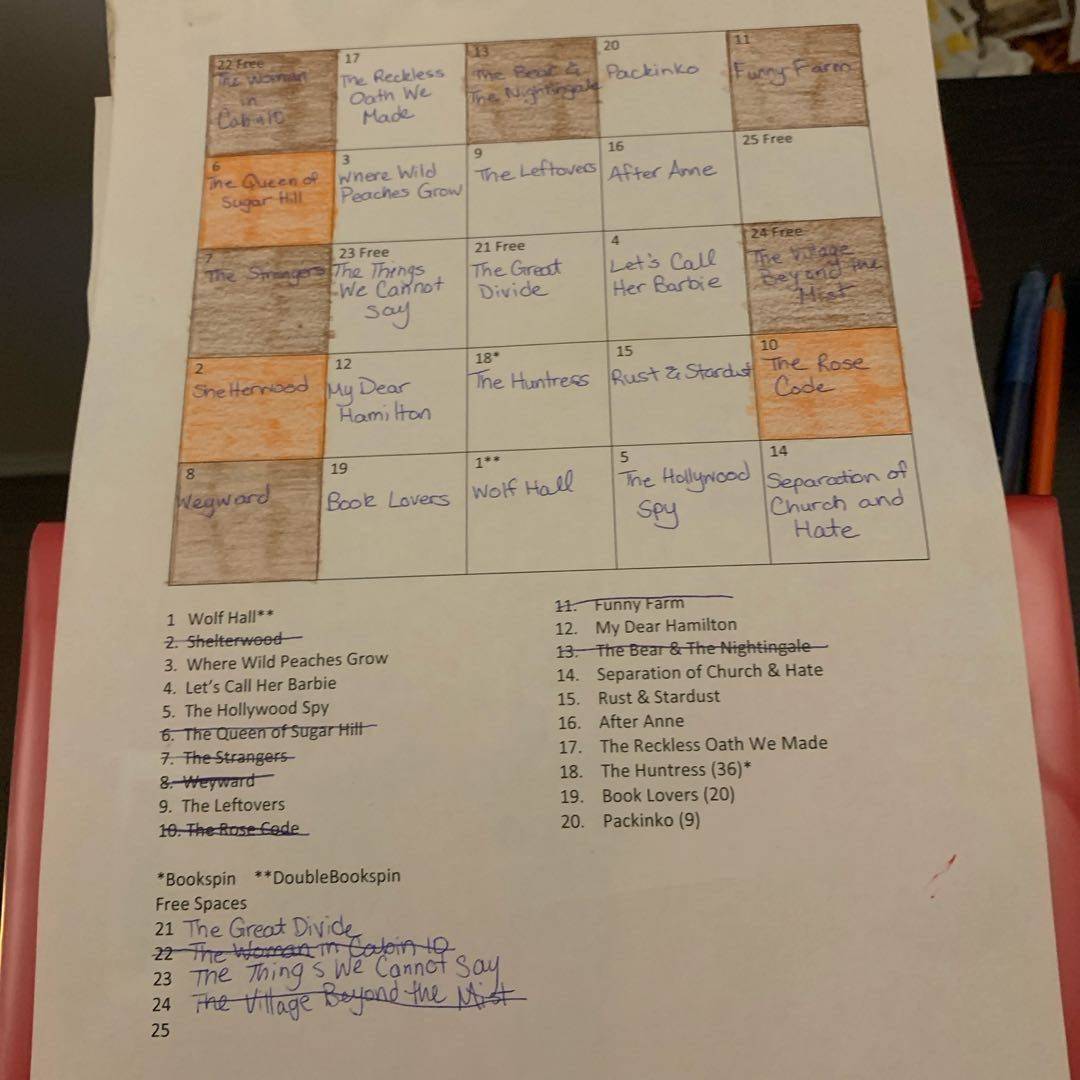 22 Free
The Woman
in
Cabin 10
17
The Reckless
Oath We
Made
13
The Bear &
The Nightingale
20
Packinko
11
Funny Farm
6
The Queen of
Sugar Hill
3
Where Wild
Peaches Grow
9
The Leftovers
16
After Anne
25 Free
7
The Strangers
23 Free
The Things
We Cannot
Say
21 Free
The Great
Divide
4
Let's Call
Her Barbie
24 Free
The Village
Beyond the
Mist
2
Shelterwood
12
My Dear
Hamilton
18*
The Huntress
15
Rust & Stardust
10
The Rose
Code
8
Weyward
19
Book Lovers
1**
Wolf Hall
5
The Hollywood
Spy
14
Separation of
Church and
Hate
1 Wolf Hall**
2. Shelterwood
3. Where Wild Peaches Grow
4. Let's Call Her Barbie
5. The Hollywood Spy
6. The Queen of Sugar Hill
7. The Strangers
8. Weyward
9. The Leftovers
10. The Rose Code
11. Funny Farm
12. My Dear Hamilton
13. The Bear & The Nightingale
14. Separation of Church & Hate
15. Rust & Stardust
16. After Anne
17. The Reckless Oath We Made
18. The Huntress (36)*
19. Book Lovers (20)
20. Packinko (9)
*Bookspin **DoubleBookspin
Free Spaces
21 The Great Divide
22 The Woman in Cabin 10
23 The Things We Cannot Say
24 The Village Beyond the Mist
25